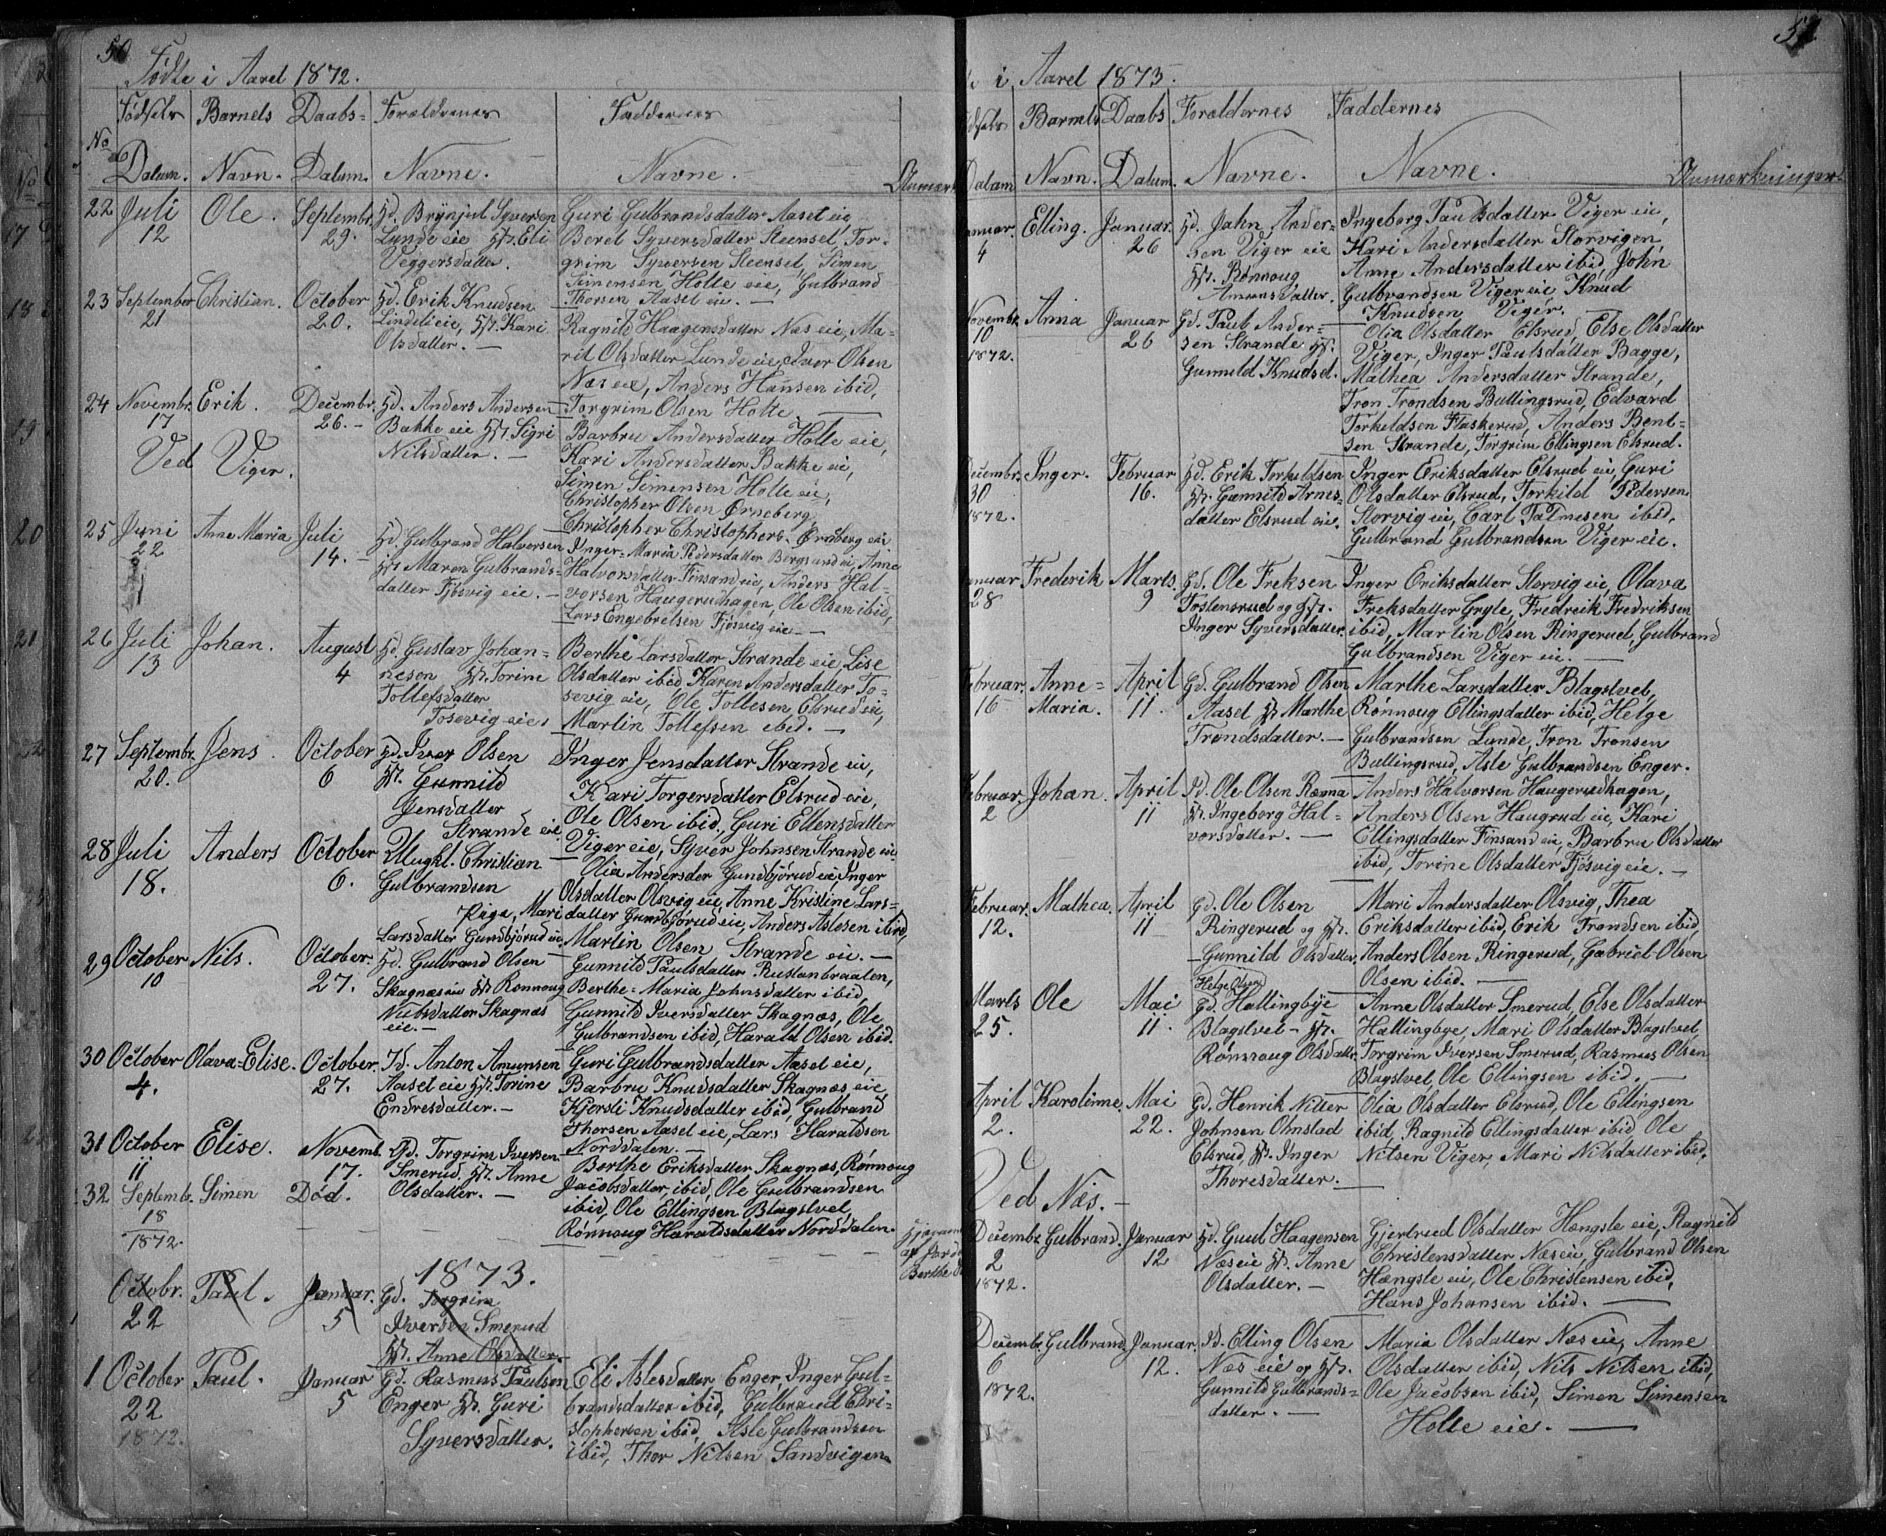 50
Fødte i Aaret 1872.
Fødsels Barnets Daabs- Forældrenes Faddernes
No
Datum. Navn. Datum. Navne. Navne. Anmærk
22 Juli 12 Ole. Septembr. 29.
Gd. Brynjul Syversen
Lunde eie Hst. Eli
Veggersdatter.
Guri Gulbrandsdatter Aaset eie,
Beret Syversdatter Steenset, Tor-
grim Syversen Steenset, Simen
Simensen Holte eie, Gulbrand
Thorsen Aaset eie. —
23 September 21 Christian. October 20.
Gd. Erik Knudsen
Lindeli eie, Hst. Kari
Olsdatter. —
Ragnild Haagensdatter Næs eie, Ma-
rit Olsdatter Lunde eie, Iver Olsen
Næs eie, Anders Hansen ibid,
Torgrim Olsen Holte. —
24 Novembr. 17 Erik. Decembr. 26. -
Gd. Anders Andersen
Bakke eie Hst. Sigri
Nilsdatter. —
Barbru Andersdatter Holte eie,
Kari Andersdatter Bakke eie,
Simen Simensen Holte eie,
Christopher Olsen Ørneberg,
Christopher Christophers. Ørneberg eie
Ved Viger.
25 Juni 22 Anne Maria Juli 14. -
Gd. Gulbrand Halvorsen
Hst. Maren Gulbrands-
datter Fjösvig eie. —
Inger-Maria Pedersdatter Bergsund eie, Anne
Halvorsdatter Finsand eie, Anders Hal-
vorsen Haugerudhagen, Ole Olsen ibid,
Lars Engebretsen Fjösvig eie —
26 Juli 13 Johan. August 4
Gd. Gustav Johan-
nesen Hst. Torine
Tollefsdatter
Tosevig eie,
Berthe Larsdatter Strande eie, Lise
Olsdatter ibid, Karen Andersdatter To-
sevig eie, Ole Tollesen Elsrud eie,
Martin Tollefsen ibid. —
27 Septembr. 20. Jens. October 6
Gd. Iver Olsen
Hst. Gunnild
Jensdatter
Strande eie
Inger Jensdatter Strande eie,
Kari Torgersdatter Elsrud eie,
Ole Olsen ibid, Guri Ellensdatter
Viger eie, Syver Johnsen Strande eie
28 Juli 18. Anders October 6.
Ungkl. Christian
Gulbrandsen
Piga, Mari
Larsdatter Gundbjörud eie
Olia Andersder Gundbjörud eie, Inger
Olsdatter Olsvig eie, Anne Kristine Lars-
datter Gundbjörud eie, Anders Aslesen ibid,
Martin Olsen Strande eie. —
29 October 10 Nils. October. 27.
Gd. Gulbrand Olsen
Skagnæs eie Hst. Rønnoug
Nubsdatter Skagnæs
eie. —
Gunnild Paulsdatter Rustanbraaten,
Berthe-Maria Johnsdatter ibid,
Gunnild Iversdatter Skagnæs, Ole
Gulbrandsen ibid, Harald Olsen ibid.
30 October 4. Olava-Elise. October. 27.
Id. Anton Amunsen
Aaset eie Hst. Torine
Endresdatter. —
Guri Gulbrandsdatter Aaset eie,
Barbru Knudsdatter Skagnæs eie,
Kjersti Knudsdatter ibid, Gulbrand
Thorsen Aaset eie, Lars Haraldsen
Norddalen. —
31 October 11 Elise. Novemb. 17.
Gd. Torgrim Iversen
Smerud. Hst. Anne
Olsdatter. —
Berthe Eriksdatter Skagnæs, Rønnoug
Jacobsdatter, ibid, Ole Gulbrandsen
ibid, Ole Ellingsen Blagstvet,
Rønnoug Haraldsdatter Norddalen.
32 Septemb. 18 1872. Simen Död.
1873.
Octobr. 22 Paul. Januar. 5
Gd. Torgrim
Iversen Smerud
Hst. Anne Olsdatter
1 October 22 1872. Paul. Januar 5
Gd. Rasmus Paulsen
Enger Hst. Guri
Syversdatter.
Eli Aslesdatter Enger, Inger Gul-
brandsdatter ibid, Gulbrand Chri-
stophersen ibid, Asle Gulbrandsen
ibid, Thor Nilsen Sandvigen
i Aaret 1873.
Barnets Daabs Foraldernes Faddernes
Datum Navn. Datum. Navne. Navne. Anmærkninger
4 Elling. Januar. 26
Gd. John Ander-
sen Viger eie
Hst. Rønnoug
Amunsdatter.
Ingeborg Paulsdatter Viger eie,
Kari Andersdatter Storvigen,
Anne Andersdatter ibid, John
Gulbrandsen Viger eie Knud
Knudsen Viger. —
Novembr. 10 1872. Anna Januar 26
Gd. Paul Ander-
sen Strande Hst.
Gunnild Knudsd.
Olia Olsdatter Elsrud, Else Olsdatter
Viger, Inger Paulsdatter Bagge,
Mathea Andersdatter Strande,
Tron Trondsen Bullingsrud, Edvard
Torkildsen Flaskerud, Anders Bent-
sen Strande, Torgrim Ellingsen Elsrud.
Decembr. 30 1872. Inger. Februar 16.
Gd. Erik Torkildsen
Hst. Gunnild Arnes-
datter Elsrud eie.
Inger Eriksdatter Elsrud eie, Guri
Olsdatter Elsrud, Torkild Pedersen
Storvig eie, Carl Palmesen ibid,
Gulbrand Gulbrandsen Viger eie.
Januar 28 Frederik Marts. 9
Gd. Ole Freksen
Toslensrud og Hst.
Inger Syversdatter.
Inger Eriksdatter Storvig eie, Olava
Freksdatter Gryte, Fredreik Fredriksen
ibid, Martin Olsen Ringerud, Gulbrand
Gulbrandsen Viger eie. —
Februar. 16 Anne-Maria. April 11.
Gd. Gulbrand Olsen
Aaset Hst. Marthe
Trondsdatter. —
Marthe Larsdatter Blagstvet,
Rønnoug Ellingsdatter ibid, Helge
Gulbrandsen Lunde, Tron Tronsen
Bullingsrud, Asle Gulbrandsen Enger.
Februar. 2 Johan. April 11
Id. Ole Olsen Rævna
Hst. Ingeborg Hal-
vorsdatter. —
Anders Halvorsen Haugerudhagen,
Anders Olsen Haugrud eie, Kari
Ellingsdatter Finsand eie, Barbru Olsdatter
ibid, Torine Olsdatter Fjösvig eie. —
Februar. 12. Mathea. April 11
Gd. Ole Olsen
Ringerud og Hst.
Gunnild Olsdatter.
Mari Andersdatter Olsvig, Thea
Eriksdatter ibid, Erik Trondsen ibid,
Anders Olsen Ringerud, Gabriel Olsen
Olsen ibid. —
Marts 25. Ole Mai 11.
Helge Olsen
Gd. Hallingbye
Blagstvet - Hst.
Rønnoug Olsdatter.
Anne Olsdatter Smerud, Else Olsdatter
Hallingbye, Mari Olsdatter Blagstvet,
Torgrim Iversen Smerud, Rasmus Olsen
Blagstvet, Ole Ellingsen ibid. —
April 2. Karolinne. Mai 22.
Gd. Henrik Nitter
Johnsen Omstad
Elsrud, Hst. Inger
Thoresdatter. —
Olia Olsdatter Elsrud, Ole Ellingsen
ibid, Ragnild Ellingsdatter ibid, Ole
Nilsen Viger, Mari Nilsdatter ibid,
Ved Næs. -
Decembr. 2 1872. Gulbrand. Januar 12
Gd. Gud Haagensen
Næs eie Hst. Anne
Olsdatter. —
Gjertrud Olsdatter Hængsle eie, Ragnild
Christensdatter Næs eie, Gulbrand Olsen
Hængsle eie, Ole Christensen ibid,
Hans Johansen ibid. —
Decembr. 6 1872. Gulbrand Januar. 12.
Id. Elling Olsen
Næs eie og Hst.
Gunnild Gulbrands-
datter. —
Maria Olsdatter Næs eie, Anne
Olsdatter ibid, Nils Nilsen ibid,
Ole Jacobsen ibid, Simen Simensen
Holte eie. —